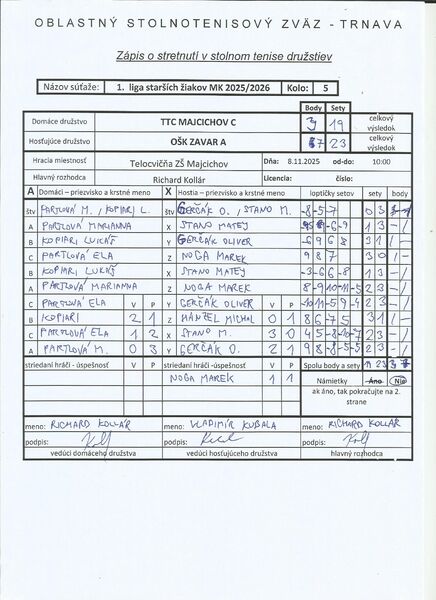 OBLASTNÝ STOLNOTENISOVÝ ZVÄZ - TRNAVA
Zápis o stretnutí v stolnom tenise družstiev
Názov súťaže: 1. liga starších žiakov MK 2025/2026 Kolo: 5
Body Sety
Domáce družstvo TTC MAJCICHOV C 3 19 celkový výsledok
Hosťujúce družstvo OŠK ZAVAR A 7 23 celkový výsledok
Hracia miestnosť Telocvičňa ZŠ Majcichov Dňa: 8.11.2025 od-do: 10:00
Hlavný rozhodca Richard Kollár Licencia: číslo:
A Domáci – priezvisko a krstné meno X Hostia – priezvisko a krstné meno loptičky setov sety body
štv PARTLOVÁ M., KOPIARI L. štv GERČÁK O., STANO M. -8-5-7 0 3
A PARTLOVÁ MARIANNA X STANO MATEJ
B KOPIARI LUKÁŠ Y GERČÁK OLIVER -6 9 6 8 3 1 1 –
C PARTLOVÁ ELA Z NOGA MAREK 9 8 7 3 0 1 –
B KOPIARI LUKÁŠ X STANO MATEJ -3-6 6-8 1 3 – 1
A PARTLOVÁ MARIANNA Z NOGA MAREK 8-9 10-11-5 2 3 – 1
C PARTLOVÁ ELA V P Y GERČÁK OLIVER V P -10 11-5 9-4 2 3 – 1
B KOPIARI 2 1 Z HÄNZEL MICHAL 0 1 8 6-7 5 3 1 1 –
C PARTLOVÁ ELA 1 2 X STANO M. 3 0 4 5-8-10-7 2 3 – 1
A PARTLOVÁ M. 0 3 Y GERČÁK O. 2 1 9 8-8-5-5 2 3 – 1
striedaní hráči - úspešnosť V P striedaní hráči - úspešnosť V P Spolu body a sety 19 23 3 7
NOGA MAREK 1 1 Námietky Áno Nie
ak áno, tak pokračujte na 2. strane
meno: RICHARD KOLLÁR meno: VLADIMÍR KUBALA meno: RICHARD KOLLÁR
podpis: podpis: podpis:
vedúci domáceho družstva vedúci hosťujúceho družstva hlavný rozhodca